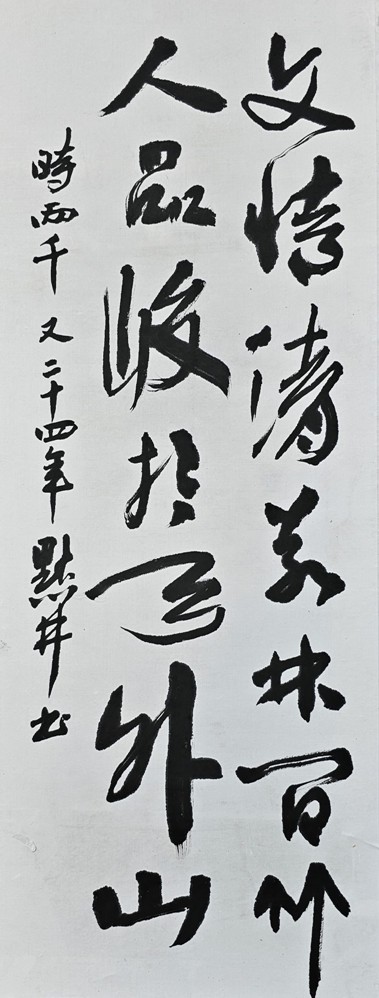 文情清若林間竹
人品峻於天外山
時兩千又二十四年 點井書